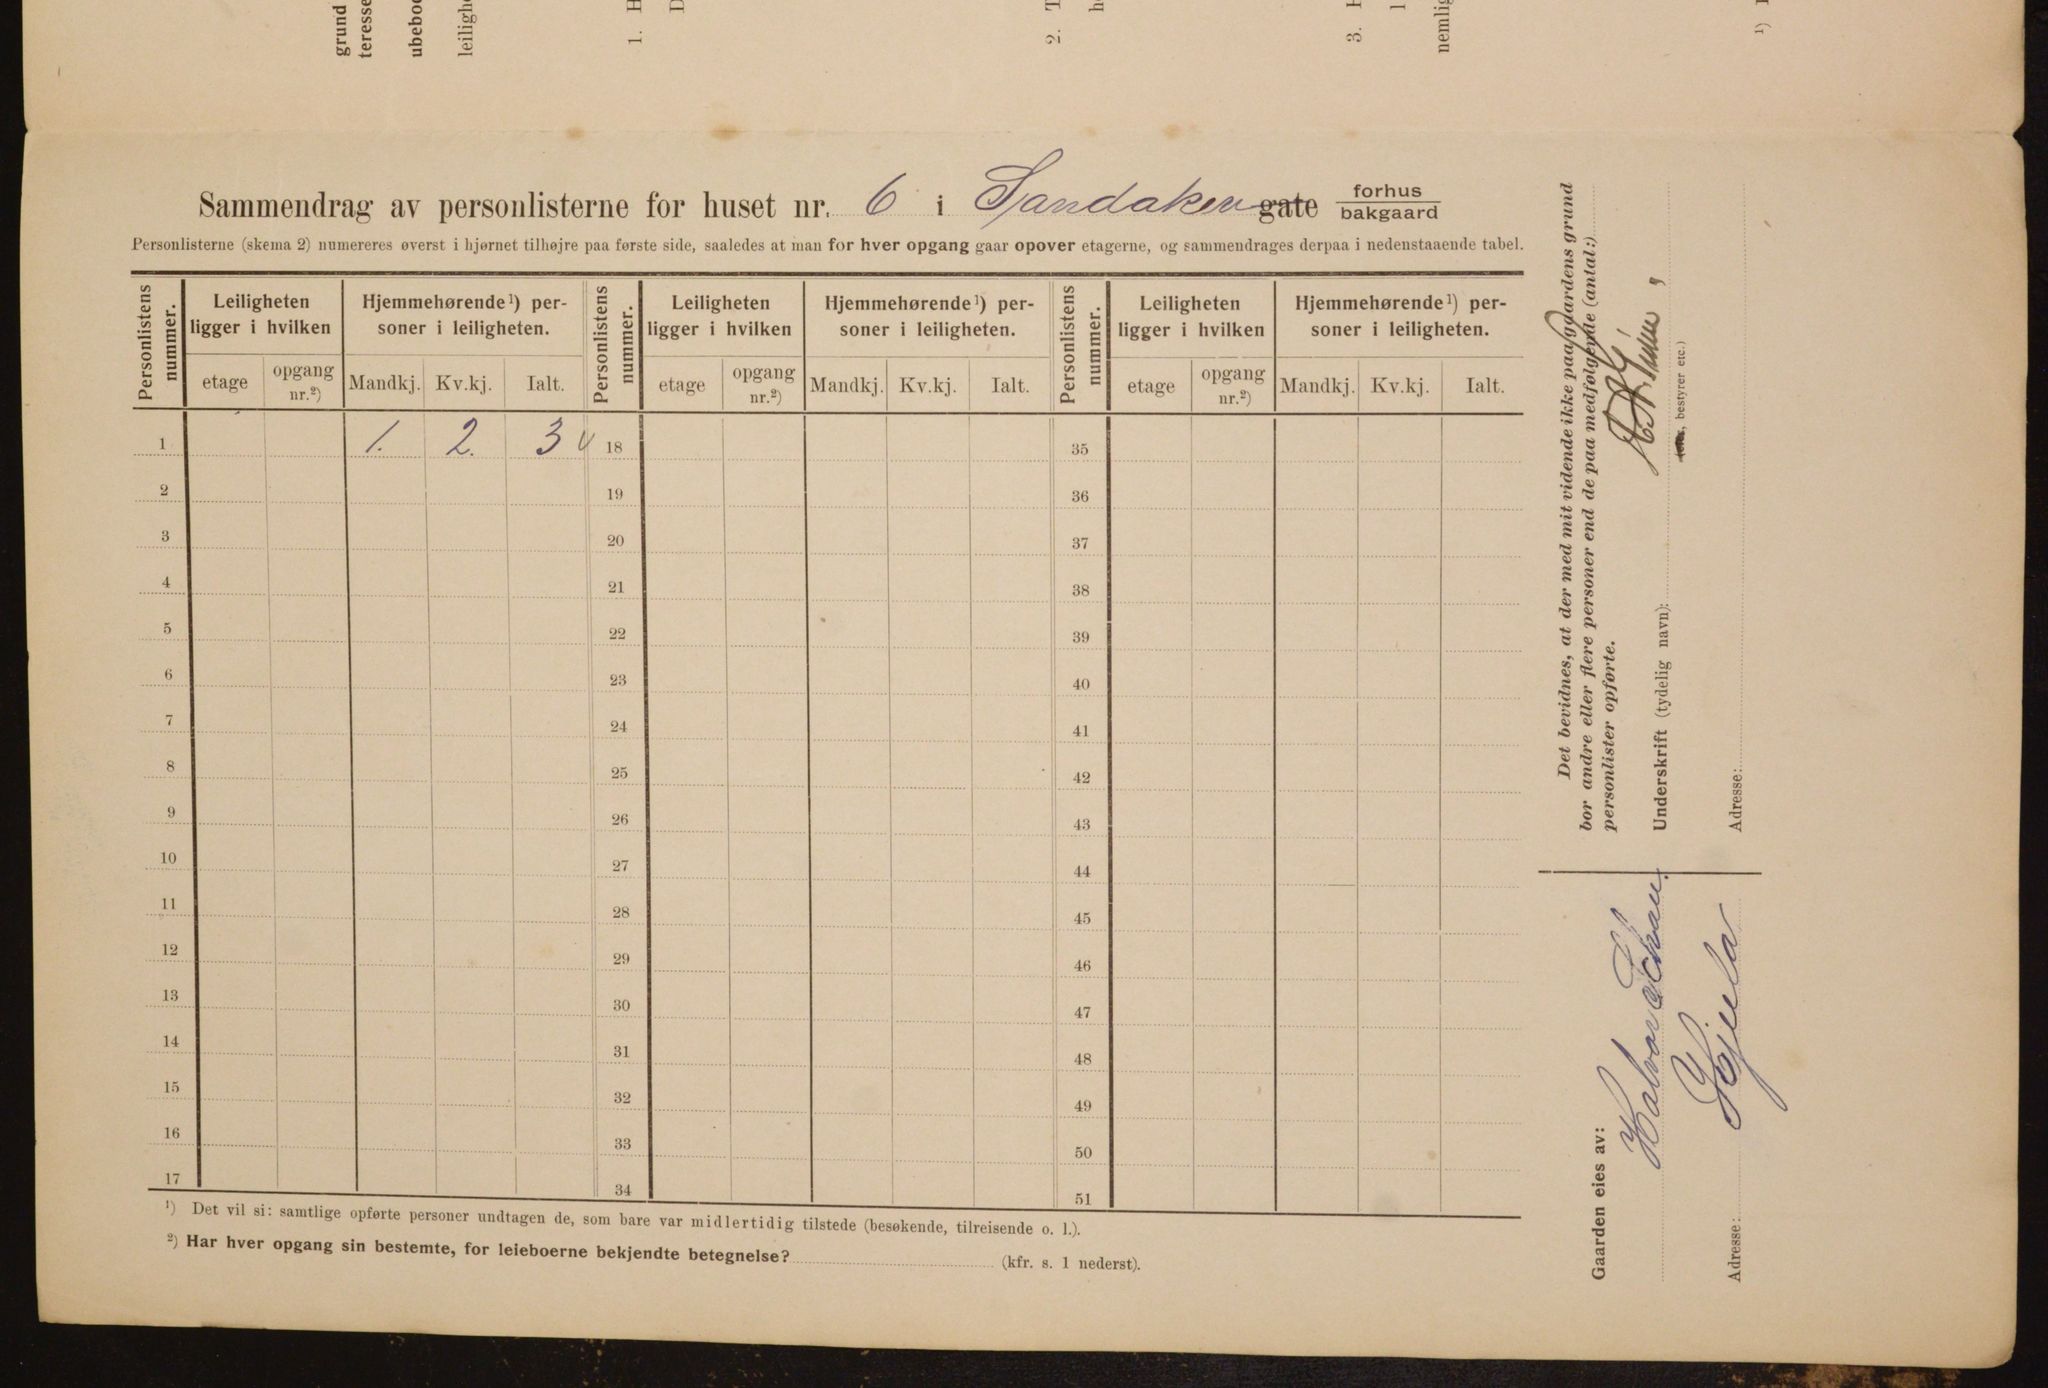 grund
teresse
ubeboe
leilighe
1. H
D
2. T
h
3. H
l
nemlig
¹) I
Sammendrag av personlisterne for huset nr. 6 i Sandakerv gate forhus bakgaard
Personlisterne (skema 2) numereres øverst i hjørnet tilhøjre paa første side, saaledes at man for hver opgang gaar opover etagerne, og sammendrages derpaa i nedenstaaende tabel.
Personlistens nummer. Leiligheten ligger i hvilken Hjemmehørende¹) personer i leiligheten. Personlistens nummer. Leiligheten ligger i hvilken Hjemmehørende¹) personer i leiligheten. Personlistens nummer. Leiligheten ligger i hvilken Hjemmehørende¹) personer i leiligheten.
etage opgang nr.²) Mandkj. Kv.kj. Ialt. etage opgang nr.²) Mandkj. Kv.kj. Ialt. etage opgang nr.²) Mandkj. Kv.kj. Ialt.
1 1. 2. 3 18 35
2 19 36
3 20 37
4 21 38
5 22 39
6 23 40
7 24 41
8 25 42
9 26 43
10 27 44
11 28 45
12 29 46
13 30 47
14 31 48
15 32 49
16 33 50
17 34 51
¹) Det vil si: samtlige opførte personer undtagen de, som bare var midlertidig tilstede (besøkende, tilreisende o. l.).
²) Har hver opgang sin bestemte, for leieboerne bekjendte betegnelse? (kfr. s. 1 nederst).
Det bevidnes, at der med mit vidende ikke paa gaardens grund
bor andre eller flere personer end de paa medfølgende (antal:)
personlister opførte.
Underskrift (tydelig navn):
bestyrer etc.)
Adresse:
Gaarden eies av:
Halvor
Adresse: